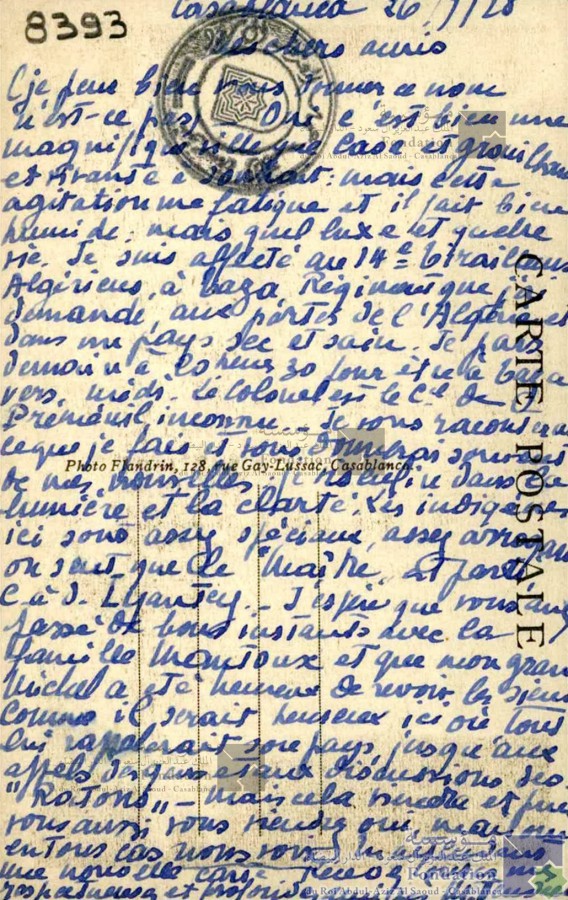 8393
Casablanca 26/ /28
Mes chers amis
(je peux bien vous donner ce nom
n'est-ce pas Oui c'est bien une
magnifique ville que Casa et
et vivante à souhait; mais cette
agitation me fatigue et il fait bien
humide, mais quel luxe et quelle
vie. Je suis affecté au 14e tirailleurs
Algériens, à Taza, Régiment que
demandé, aux portes de l'Algérie et
dans un pays sec et sain. Je pars
demain à 30 pour être à Taza
vers midi. Le Colonel est le Cel de
inconnu - Je vous raconterai
ce que je fais et vous donnerai souvent
Photo Flandrin, 128, rue Gay-Lussac, Casablanca.
de mes nouvelles. dans la
lumière et la clarté. Les indigènes
ici sont assez spéciaux, assez
on sent que le "Maître" est parti
C. à d. Lyautey. - J'espère que vous avez
passé de bons instants avec la
famille et que mon grand
Michel a été heureux de revoir les siens
Comme il serait heureux ici où tout
lui rappelerait son pays, jusqu'aux
appels des gares et aux discussions des
"Ratons" - Mais cela viendra et puis
vous aussi vous viendrez
en tous cas nous
une nouvelle
respectueux et
CARTE POSTALE
Fondation
du Roi Abdul-Aziz Al Saoud - Casablanca